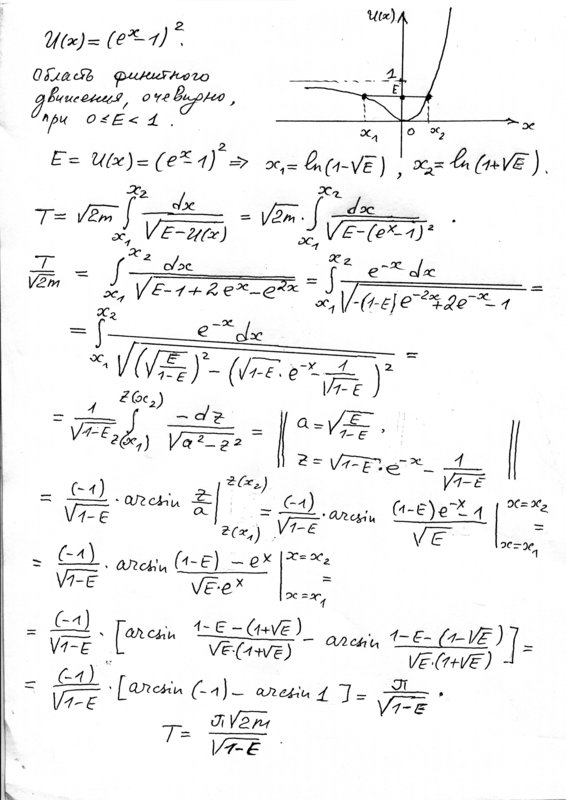 U(x) = (eˣ − 1)².
Область финитного
движения, очевидно,
при 0 ≤ E < 1.
U(x)
1
E
x₁ 0 x₂ x
E = U(x) = (eˣ − 1)² ⇒ x₁ = ln(1 − √E), x₂ = ln(1 + √E).
T = √2m ∫_{x₁}^{x₂} dx / √(E − U(x)) = √2m · ∫_{x₁}^{x₂} dx / √(E − (eˣ − 1)²) .
T/√2m = ∫_{x₁}^{x₂} dx / √(E − 1 + 2eˣ − e²ˣ) = ∫_{x₁}^{x₂} e⁻ˣ dx / √(−(1 − E)e⁻²ˣ + 2e⁻ˣ − 1) =
= ∫_{x₁}^{x₂} e⁻ˣ dx / √((√(E/(1−E)))² − (√(1−E) · e⁻ˣ − 1/√(1−E))²) =
= 1/√(1−E) ∫_{z(x₁)}^{z(x₂)} −dz / √(a² − z²) = ‖ a = √(E/(1−E)), z = √(1−E) · e⁻ˣ − 1/√(1−E) ‖
= (−1)/√(1−E) · arcsin z/a |_{z(x₁)}^{z(x₂)} = (−1)/√(1−E) · arcsin ((1−E)e⁻ˣ − 1)/√E |_{x=x₁}^{x=x₂} =
= (−1)/√(1−E) · arcsin ((1−E) − eˣ)/(√E · eˣ) |_{x=x₁}^{x=x₂} =
= (−1)/√(1−E) · [arcsin (1 − E − (1+√E))/(√E·(1+√E)) − arcsin (1 − E − (1−√E))/(√E·(1+√E))] =
= (−1)/√(1−E) · [arcsin (−1) − arcsin 1] = π/√(1−E) .
T = π√2m / √(1−E) .